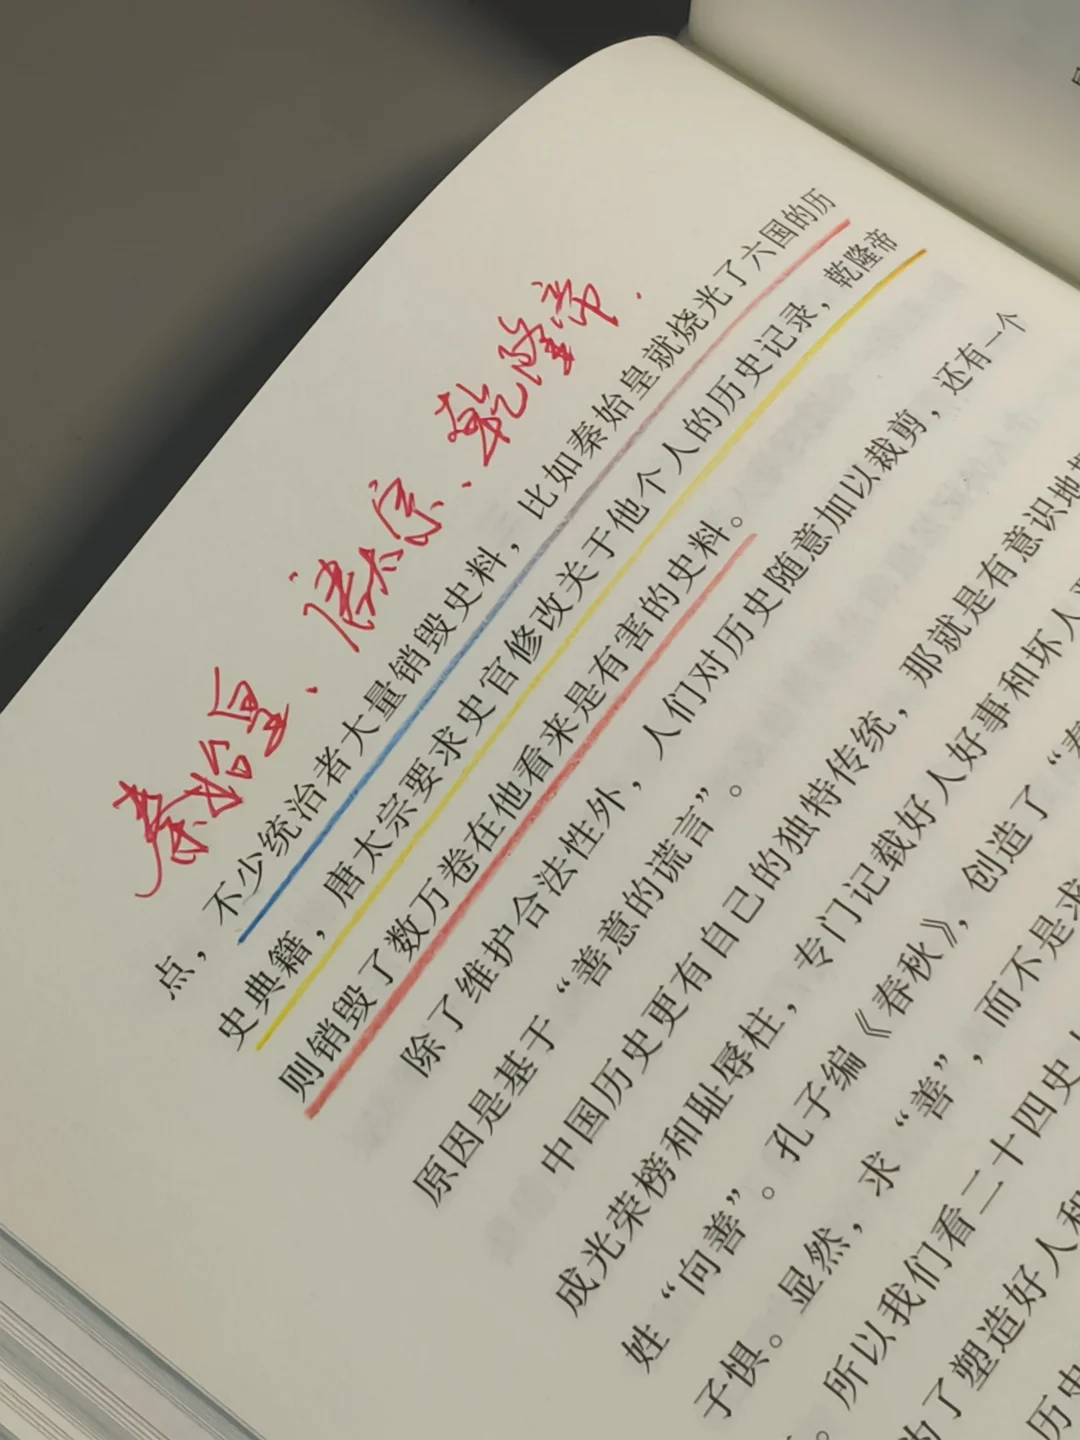 秦始皇、唐太宗、乾隆帝.
点，不少统治者大量销毁史料，比如秦始皇就烧光了六国的历
史典籍，唐太宗要求史官修改关于他个人的历史记录，乾隆帝
则销毁了数万卷在他看来是有害的史料。
除了维护合法性外，人们对历史随意加以裁剪，还有一个
原因是基于“善意的谎言”。
中国历史更有自己的独特传统，那就是有意识地
成光荣榜和耻辱柱，专门记载好人好事和坏人
姓“向善”。孔子编《春秋》，创造了“
子惧。显然，求“善”，而不是求
。所以我们看二十四史
了塑造好人和
历史